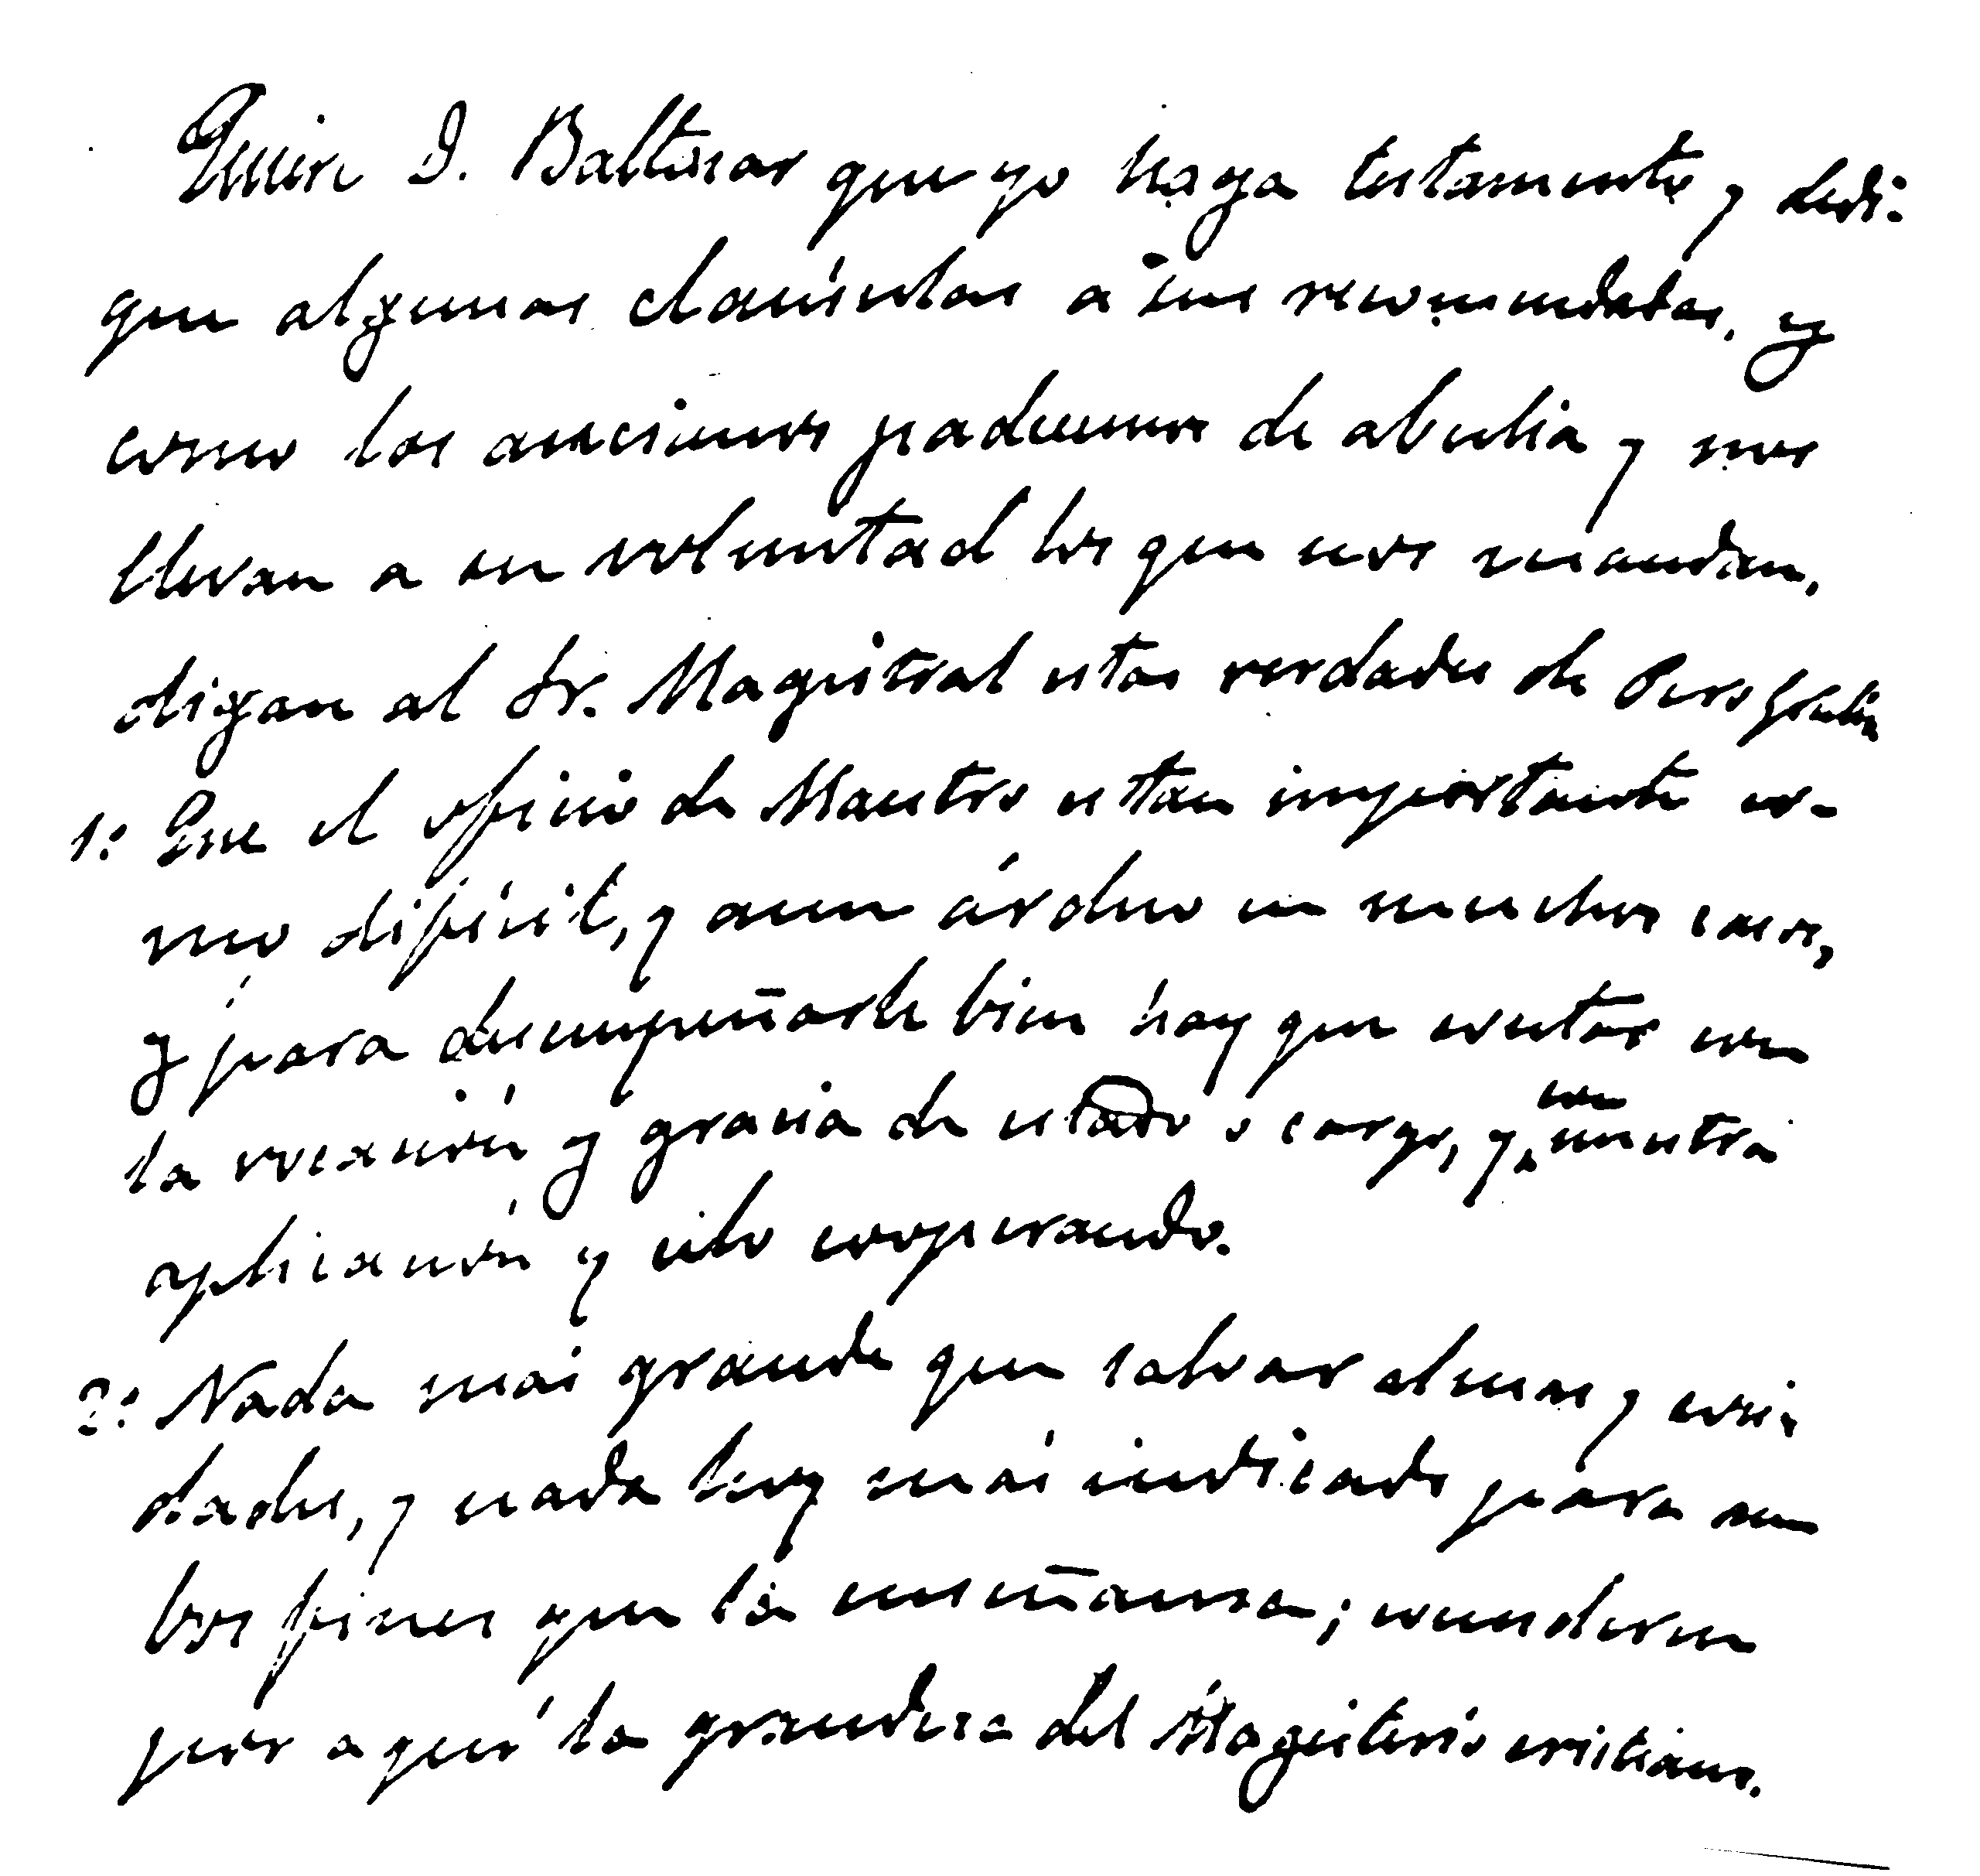 Quiere D. Baltasar que yo haga testamento y dedi-
que algunas cláusulas a sus recomendadas. y
como los ancianos padecemos de abulia y nos
llevan a su voluntad los que nos mandan,
oigan al Sr. Magistral estas verdades de Pero Grullo
1ª Que el oficio de Maestro es tan importante co-
mo dificil, y aun árduo en muchos casos,
y para desempeñarle bien hay que contar con
la vocación y gracia de estado o cargo, y con nuestra
aplicación y celo cooperando.
2ª Nada más grande que salvar almas y cui-
dades, y nada hay más indicado para am
bos fines que la enseñanza; ved
pues aquí la grandeza del Magisterio cristiano.